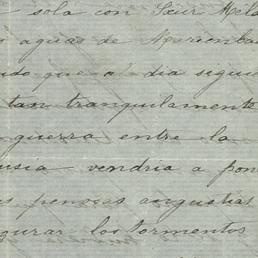 sola con Sœur Mel
aguas de Marienba
do que al dia sigui
tan tranquilamente
guerra entre la
usia vendria a pon
es penosas angustias
gurar los tormentos